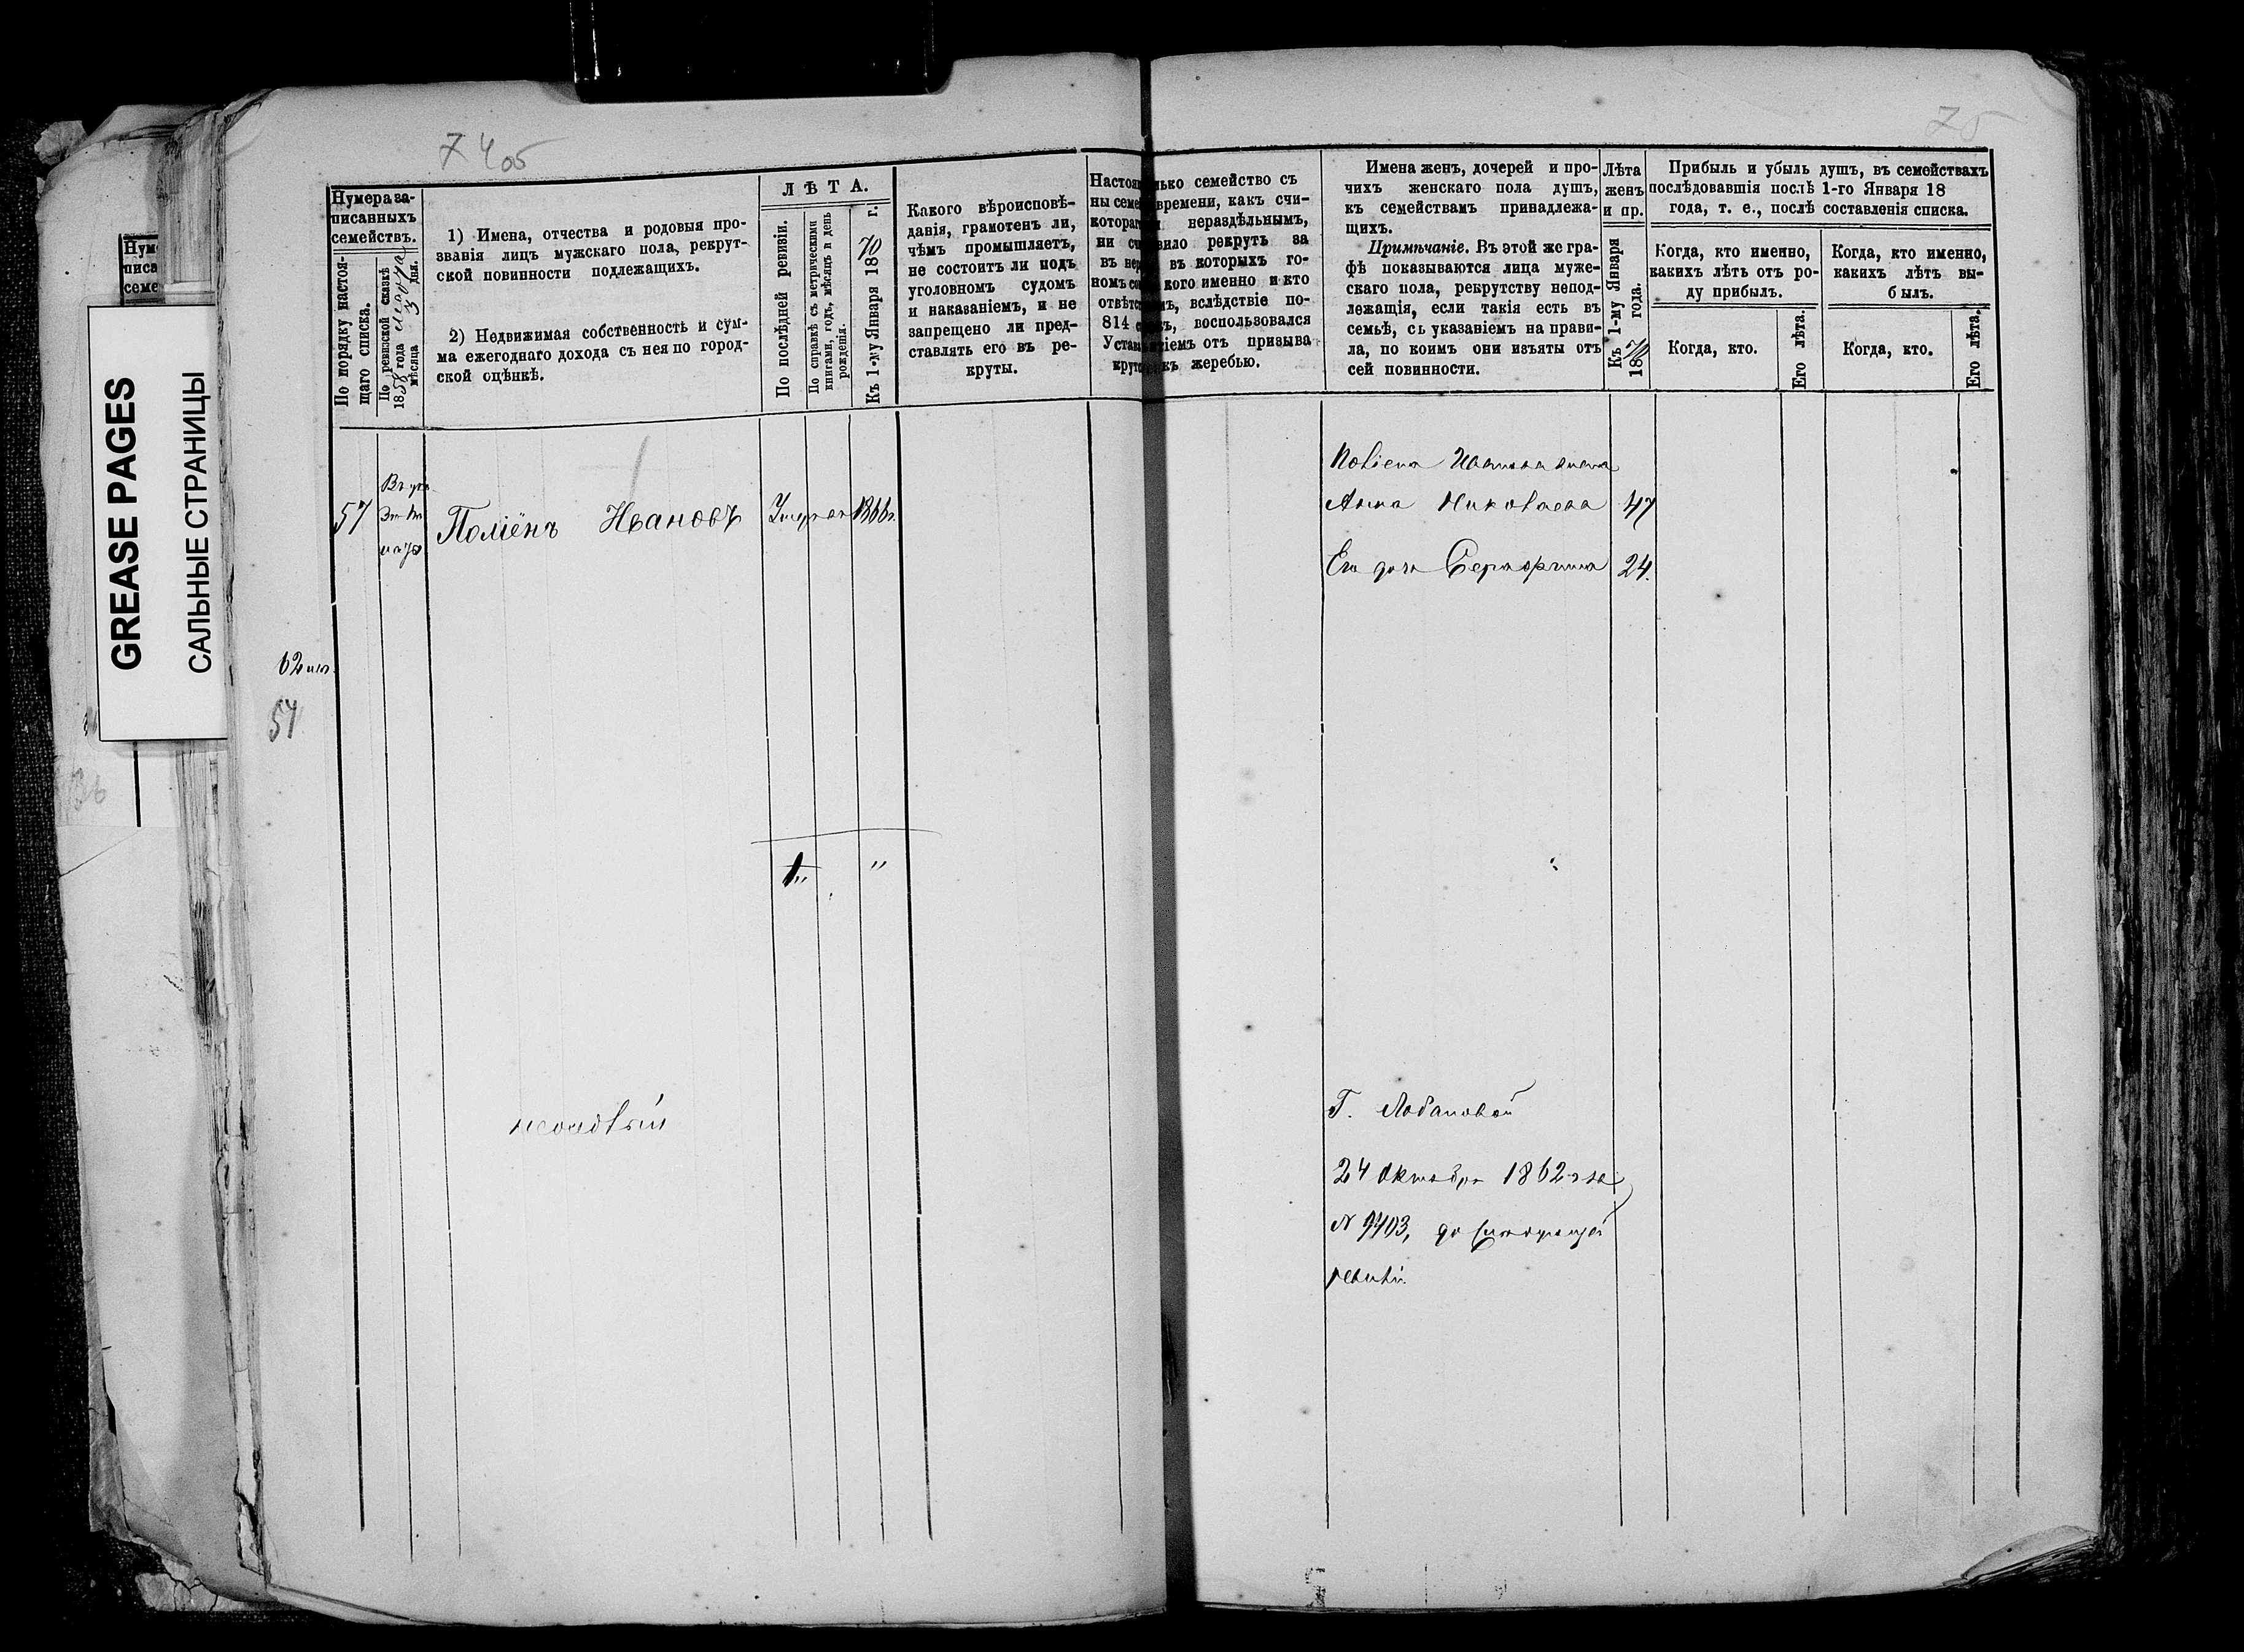 74об
75
GREASE PAGES
САЛЬНЫЕ СТРАНИЦЫ
Нумера за-
писанныхъ
семействъ.
По порядку настоя-
щаго списка.
По ревизской сказкѣ
18 года
мѣсяца дня.
1) Имена, отчества и родовыя про-
званія лицъ мужскаго пола, рекрут-
ской повинности подлежащихъ.
2) Недвижимая собственность и сум-
ма ежегоднаго дохода съ нея по город-
ской оцѣнкѣ.
ЛѢТА.
По послѣдней ревизіи.
По справкѣ съ метрическими
книгами, годъ, мѣсяцъ и день
рожденія.
Къ 1-му Января 1870 г.
Какого вѣроисповѣ-
данія, грамотенъ ли,
чѣмъ промышляетъ,
не состоитъ ли подъ
уголовномъ судомъ
и наказаніемъ, и не
запрещено ли пред-
ставлять его въ ре-
круты.
семейство съ
времени, какъ счи-
нераздѣльнымъ,
рекрутъ за
въ которыхъ го-
кого именно и кто
вслѣдствіе по-
814 воспользовался
отъ призыва
жеребью.
Имена женъ, дочерей и про-
чихъ женскаго пола душъ,
къ семействамъ принадлежа-
щихъ.
Примѣчаніе. Въ этой же гра-
фѣ показываются лица муже-
скаго пола, рекрутству непод-
лежащія, если такія есть въ
семьѣ, съ указаніемъ на прави-
ла, по коимъ они изъяты отъ
сей повинности.
Лѣта
женъ
и пр.
Къ 1-му Января
1870 года.
Прибыль и убыль душъ, въ семействахъ
послѣдовавшія послѣ 1-го Января 18
года, т. е., послѣ составленія списка.
Когда, кто именно,
какихъ лѣтъ отъ ро-
ду прибылъ.
Когда, кто именно,
какихъ лѣтъ вы-
былъ.
Когда, кто.
Его лѣта.
Когда, кто.
Его лѣта.
57
Ивановъ
Умеръ 1866г.
Анна Николаева 47
Его дочь Серафима 24.
57
1 „ „
Г. Лобановой
24 Октября 1862 за
N 9403, до слѣдующей
ревизіи.